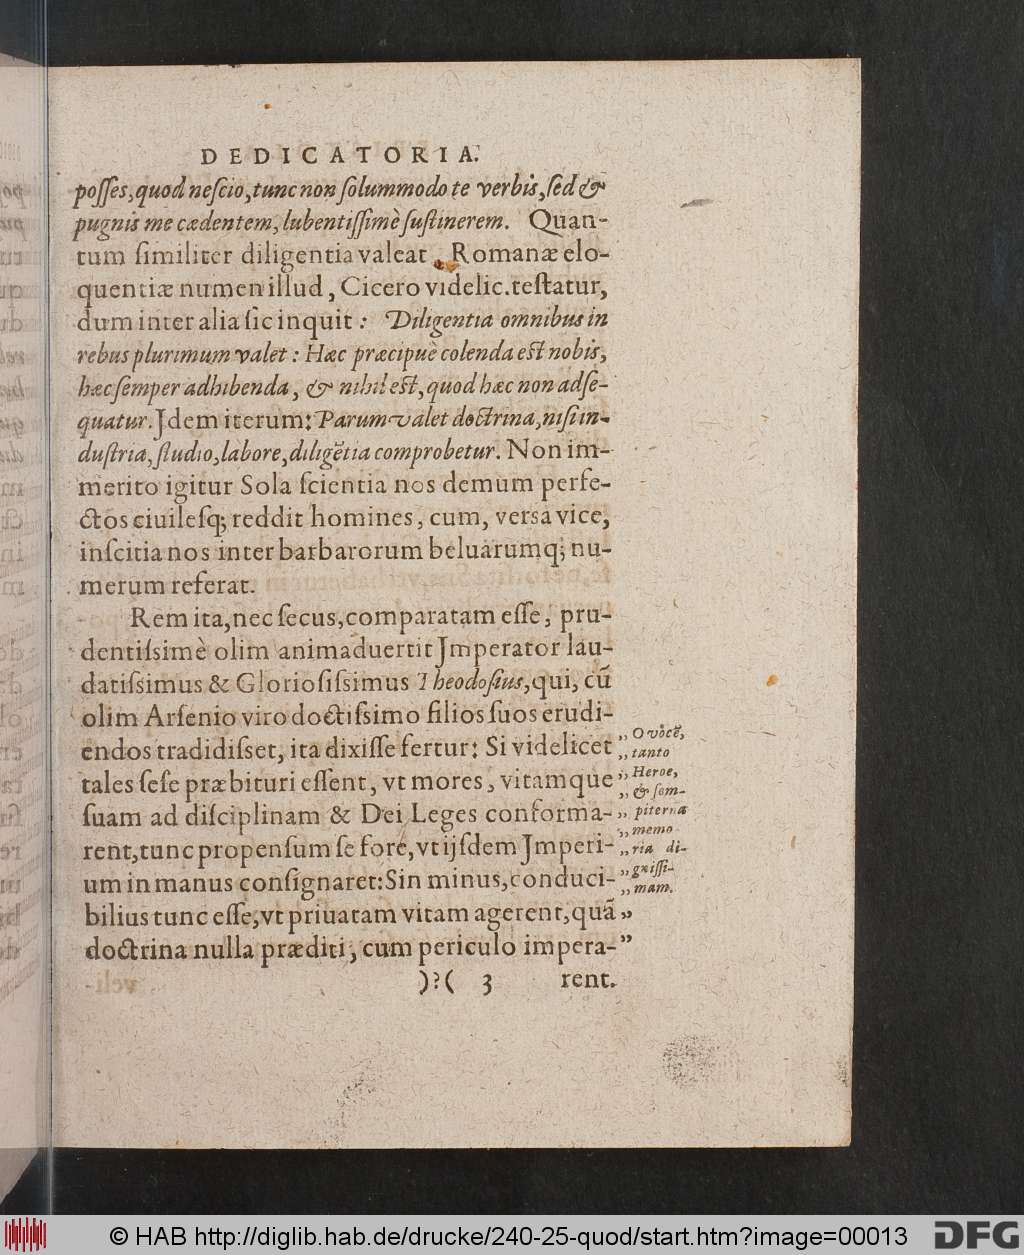 DEDICATORIA.
poſſes, quod neſcio, tunc non ſolummodo te verbis, ſed &
pugnis me cædentem, lubentiſſimè ſuſtinerem. Quan-
tum ſimiliter diligentia valeat, Romanæ elo-
quentiæ numen illud, Cicero videlic. teſtatur,
dum inter alia ſic inquit: Diligentia omnibus in
rebus plurimum valet: Hæc præcipuè colenda eſt nobis,
hæc ſemper adhibenda, & nihil eſt, quod hæc non adſe-
quatur. Jdem iterum: Parum valet doctrina, niſi in-
duſtria, ſtudio, labore, diligẽtia comprobetur. Non im-
merito igitur Sola ſcientia nos demum perfe-
ctos ciuileſq; reddit homines, cum, versa vice,
inſcitia nos inter barbarorum beluarumq; nu-
merum referat.
Rem ita, nec ſecus, comparatam eſſe, pru-
dentiſsimè olim animaduertit Jmperator lau-
datiſsimus & Glorioſiſsimus Theodoſius, qui, cũ
olim Arſenio viro doctiſsimo filios ſuos erudi-
endos tradidiſset, ita dixiſſe fertur: Si videlicet
tales ſeſe præbituri eſſent, vt mores, vitamque
ſuam ad diſciplinam & Dei Leges conforma-
rent, tunc propenſum ſe fore, vt ijſdem Jmperi-
um in manus conſignaret: Sin minus, conduci-
bilius tunc eſſe, vt priuatam vitam agerent, quã
doctrina nulla præditi, cum periculo impera-
)?( 3 rent.
„ O vocẽ,
„ tanto
„ Heroe,
„ & ſem-
„ piterna
„ memo
„ ria di-
„ gniſſi-
„ mam.
”
”
© HAB http://diglib.hab.de/drucke/240-25-quod/start.htm?image=00013
DFG